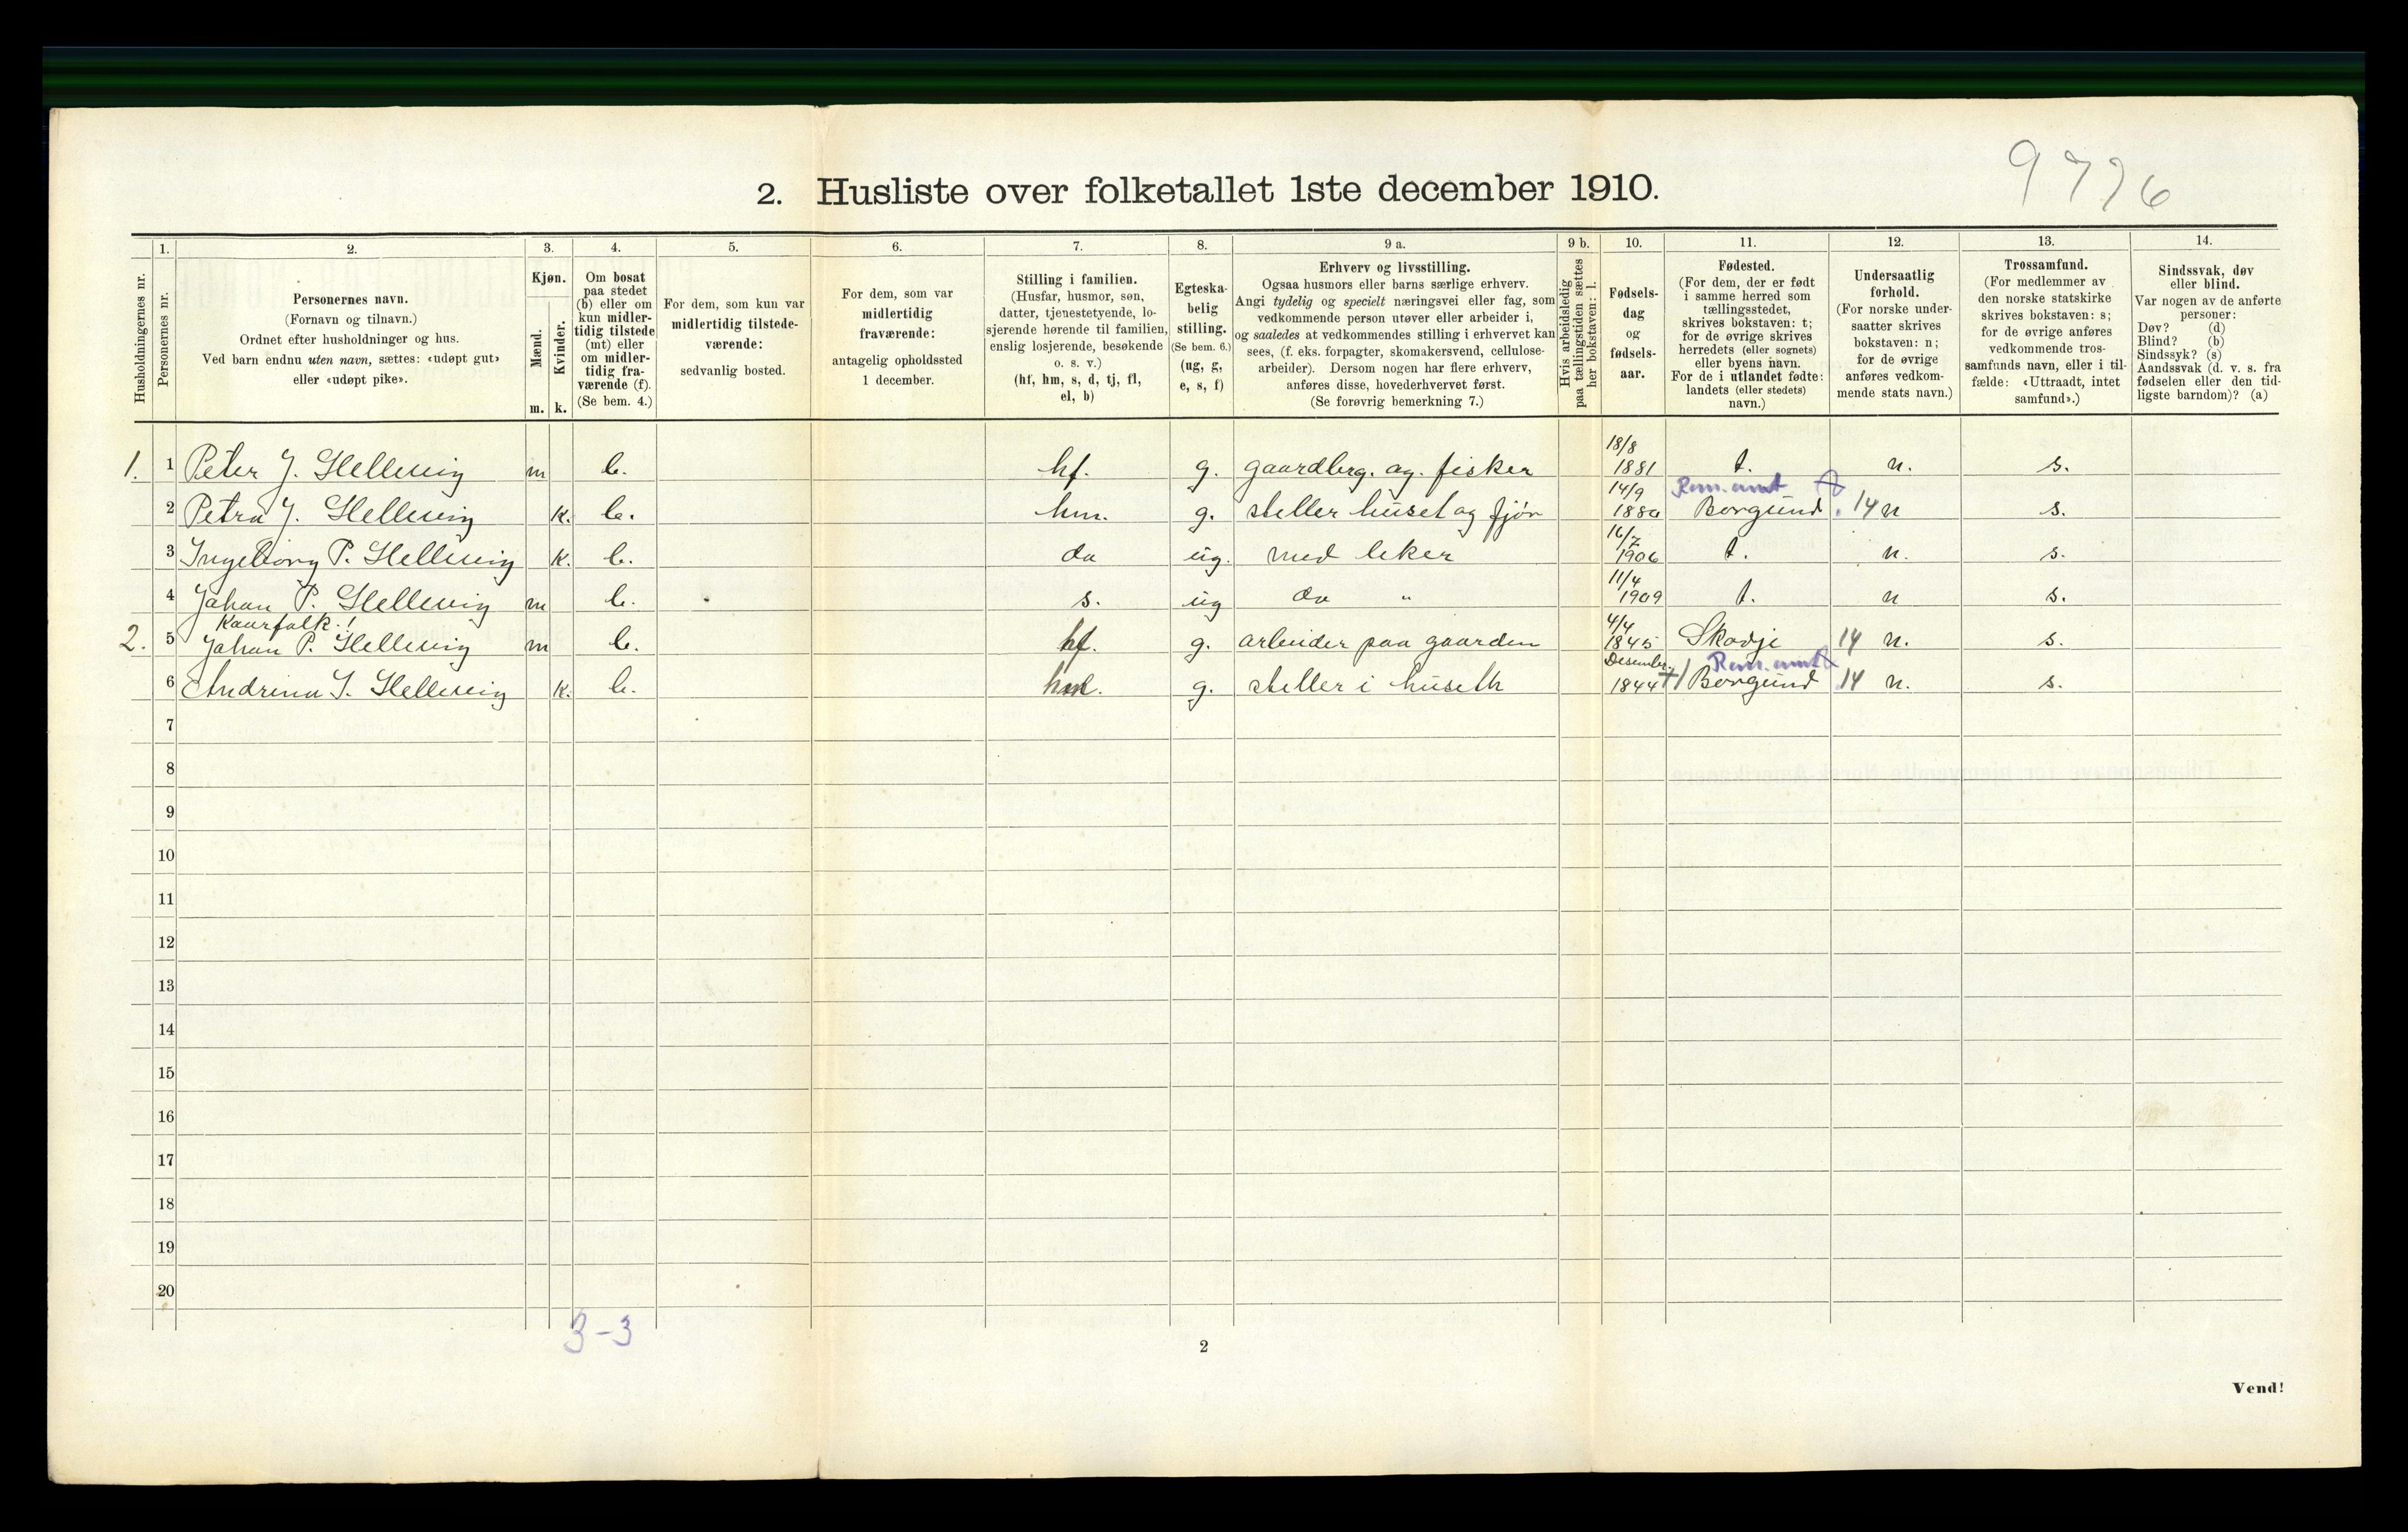 9776
2. Husliste over folketallet 1ste december 1910.
Husholdningernes nr.
1.
Personernes nr.
2.
Personernes navn.
(Fornavn og tilnavn.)
Ordnet efter husholdninger og hus.
Ved barn endnu uten navn, sættes: «udøpt gut»
eller «udøpt pike».
3.
Kjøn.
Mænd.
Kvinder.
m. k.
4.
Om bosat
paa stedet
(b) eller om
kun midler-
tidig tilstede
(mt) eller
om midler-
tidig fra-
værende (f).
(Se bem. 4.)
5.
For dem, som kun var
midlertidig tilstede-
værende:
sedvanlig bosted.
6.
For dem, som var
midlertidig
fraværende:
antagelig opholdssted
1 december.
7.
Stilling i familien.
(Husfar, husmor, søn,
datter, tjenestetyende, lo-
sjerende hørende til familien,
enslig losjerende, besøkende
o. s. v.)
(hf, hm, s, d, tj, fl,
el, b)
8.
Egteska-
belig
stilling.
(Se bem. 6.)
(ug, g,
e, s, f)
9 a.
Erhverv og livsstilling.
Ogsaa husmors eller barns særlige erhverv.
Angi tydelig og specielt næringsvei eller fag, som
vedkommende person utøver eller arbeider i,
og saaledes at vedkommendes stilling i erhvervet kan
sees, (f. eks. forpagter, skomakersvend, cellulose-
arbeider). Dersom nogen har flere erhverv,
anføres disse, hovederhvervet først.
(Se forøvrig bemerkning 7.)
9 b.
Hvis arbeidsledig
paa tællingstiden sættes
her bokstaven: l.
10.
Fødsels-
dag
og
fødsels-
aar.
11.
Fødested.
(For dem, der er født
i samme herred som
tællingsstedet,
skrives bokstaven: t;
for de øvrige skrives
herredets (eller sognets)
eller byens navn.
For de i utlandet fødte:
landets (eller stedets)
navn.)
12.
Undersaatlig
forhold.
(For norske under-
saatter skrives
bokstaven: n;
for de øvrige
anføres vedkom-
mende stats navn.)
13.
Trossamfund.
(For medlemmer av
den norske statskirke
skrives bokstaven: s;
for de øvrige anføres
vedkommende tros-
samfunds navn, eller i til-
fælde: «Uttraadt, intet
samfund».)
14.
Sindssvak, døv
eller blind.
Var nogen av de anførte
personer:
Døv? (d)
Blind? (b)
Sindssyk? (s)
Aandssvak (d. v. s. fra
fødselen eller den tid-
ligste barndom)? (a)
18/8
1. 1 Peter J. Hellevig m b. hf. g. gaardbrg. og. fisker 1881 t. n. s.
14/9 Rom. amt
2 Petra J. Hellevig k. b. hm. g. steller huset og fjør 1880 Borgund 14 n s.
16/7
3 Ingeborg P. Hellevig k. b. da ug. med leker 1906 t. n. s.
11/4
4 Johan P. Hellevig m b. s. ug do " 1909 t. n s.
Kaarfolk! 4/4
2. 5 Johan P. Hellevig m b. hf. g. arbeider paa gaarden 1845 Skodje 14 n. s.
Desember Rom. amt
6 Andrina I. Hellevig k. b. g. steller i huseth 1844 Borgund 14 n. s.
7
8
9
10
11
12
13
14
15
16
17
18
19
20
3-3
2
Vend!